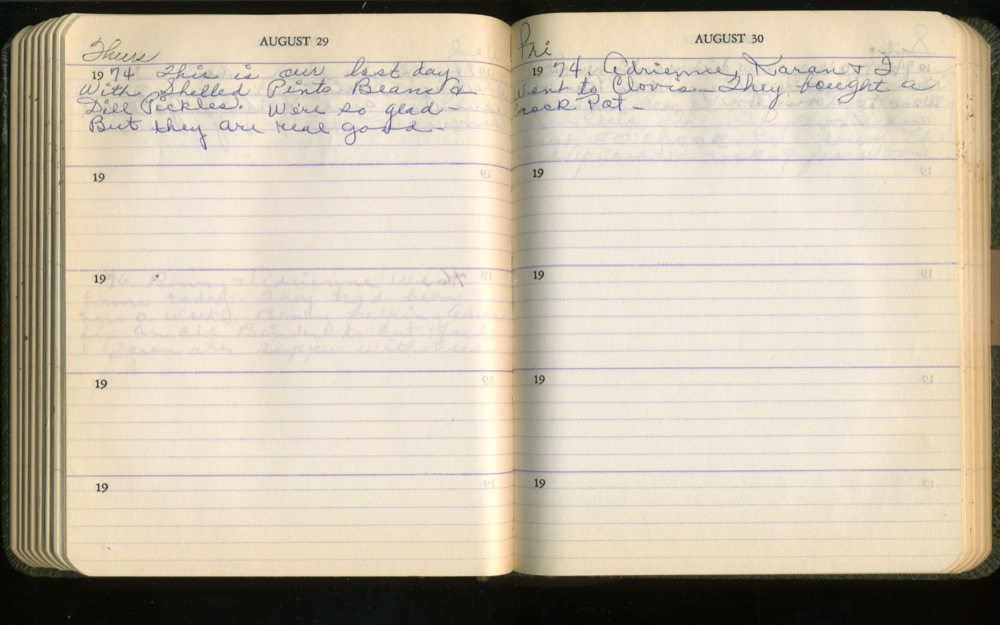 AUGUST 29
Thurs
1974 This is our last day
With Shelled Pinto Beans &
Dill Pickles. We're so glad -
But they are real good -
19
19
19
19
AUGUST 30
Fri
1974 Adrienne, Karan & I
Went to Clovis - They bought a
Crock Pot -
19
19
19
19